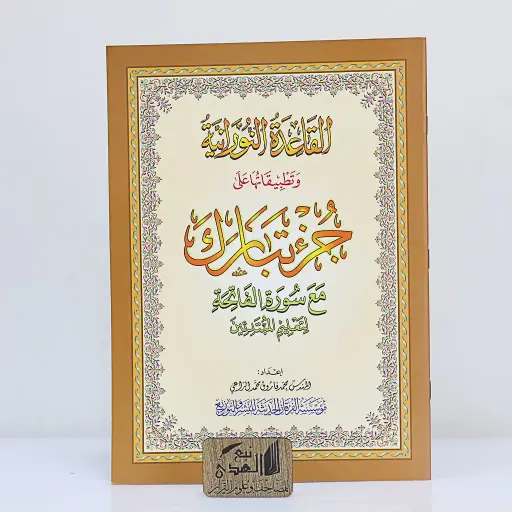 القَاعِدَةُ النُّورَانِيَّة
وَتَطْبِيقَاتُهَا عَلَى
جُزْءِ تَبَارَكَ
مَعَ سُورَةِ الفَاتِحَةِ
لِتَعْلِيمِ المُبْتَدِئِينَ
إعداد:
المهندس محمد فاروق محمد الراعي
مؤسسة الفرقان الحديثة للنشر والتوزيع
نبع
الهدى
للمصاحف وعلوم القرآن